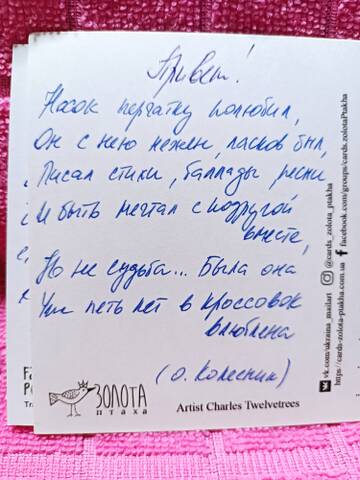 Привет!
Носок перчатку полюбил,
Он с нею нежен, ласков был,
Писал стихи, баллады, песни,
И быть мечтал с подругой
вместе,
Но не судьба... Была она
Уж пять лет в кроссовок
влюблена
(О. Колесник)
ЗОЛОТА
птаха
Artist Charles Twelvetrees
vk.com/ukraina_mailart @cards_zolota_ptakha
https://cards-zolota-ptakha.com.ua facebook.com/groups/cards.zolotaPtakha